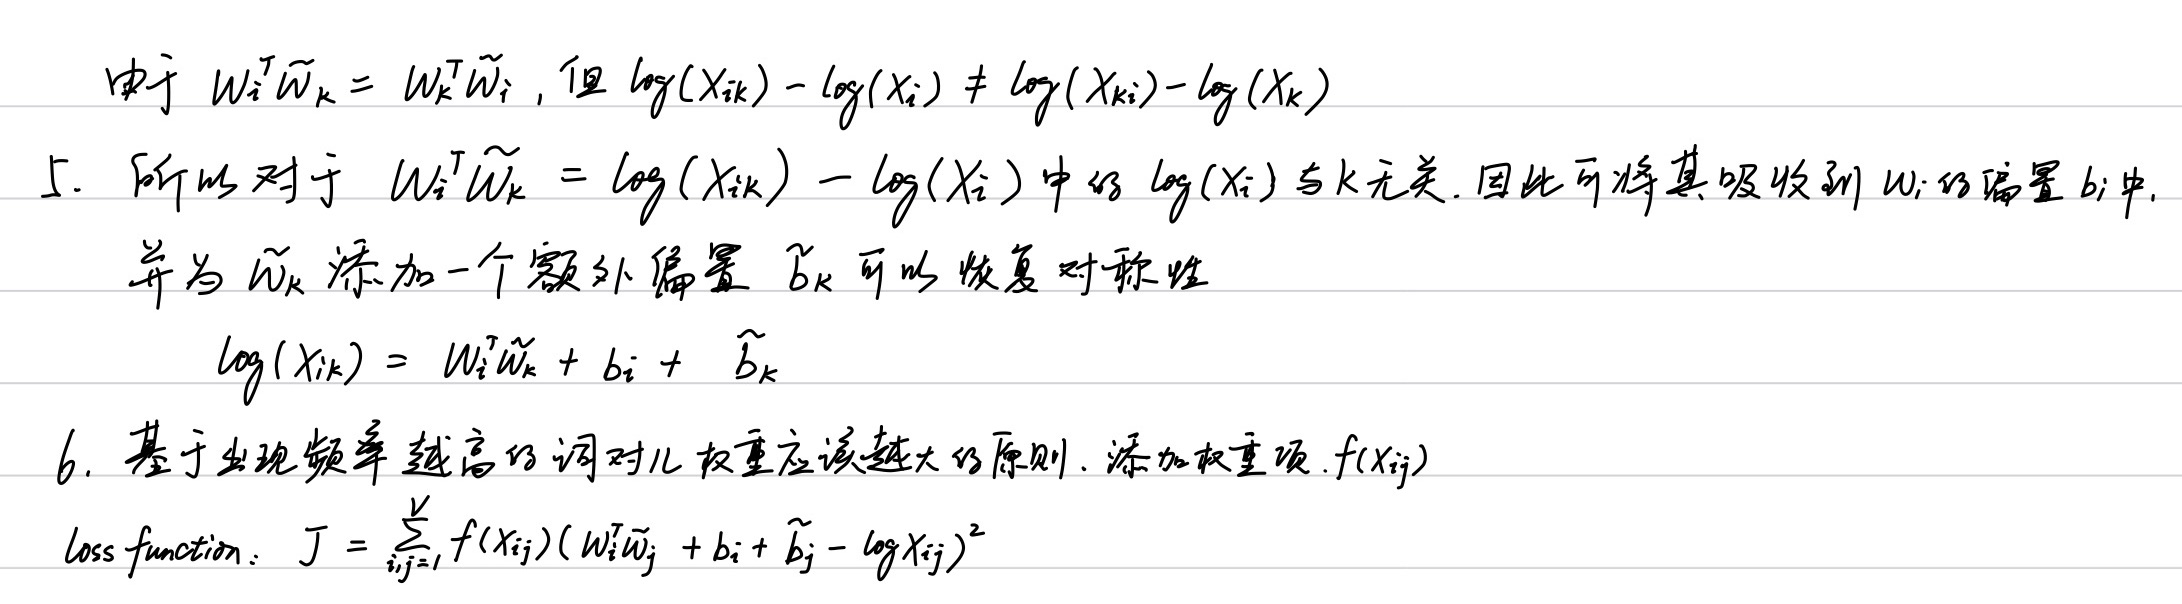 由于 Wᵢᵀw̃ₖ = Wₖᵀw̃ᵢ , 但 log(Xᵢₖ) - log(Xᵢ) ≠ log(Xₖᵢ) - log(Xₖ)
5. 所以对于 Wᵢᵀw̃ₖ = log(Xᵢₖ) - log(Xᵢ) 中的 log(Xᵢ) 与k无关. 因此可将其吸收到 wᵢ的偏置 bᵢ中,
并为 w̃ₖ 添加一个额外偏置 b̃ₖ 可以恢复对称性
log(Xᵢₖ) = Wᵢᵀw̃ₖ + bᵢ + b̃ₖ
6. 基于出现频率越高的词对儿权重应该越大的原则. 添加权重项. f(Xᵢⱼ)
loss function: J = ∑ᵢ,ⱼ₌₁ⱽ f(Xᵢⱼ)(Wᵢᵀw̃ⱼ + bᵢ + b̃ⱼ - logXᵢⱼ)²